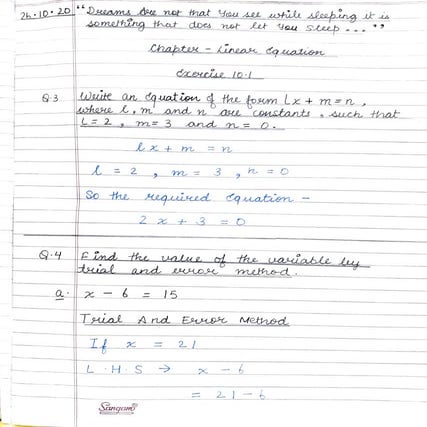 26.10.20 "Dreams are not that you see while sleeping it is
something that does not let you sleep..."
Chapter - Linear Equation
Exercise 10.1
Q.3 Write an equation of the form lx + m = n,
where l, m and n are constants, such that
L = 2, m = 3 and n = 0.
lx + m = n
l = 2, m = 3, n = 0
So the required equation -
2x + 3 = 0
Q.4 Find the value of the variable by
trial and error method.
a. x - 6 = 15
Trial And Error Method
If x = 21
L.H.S → x - 6
= 21 - 6
Sangam